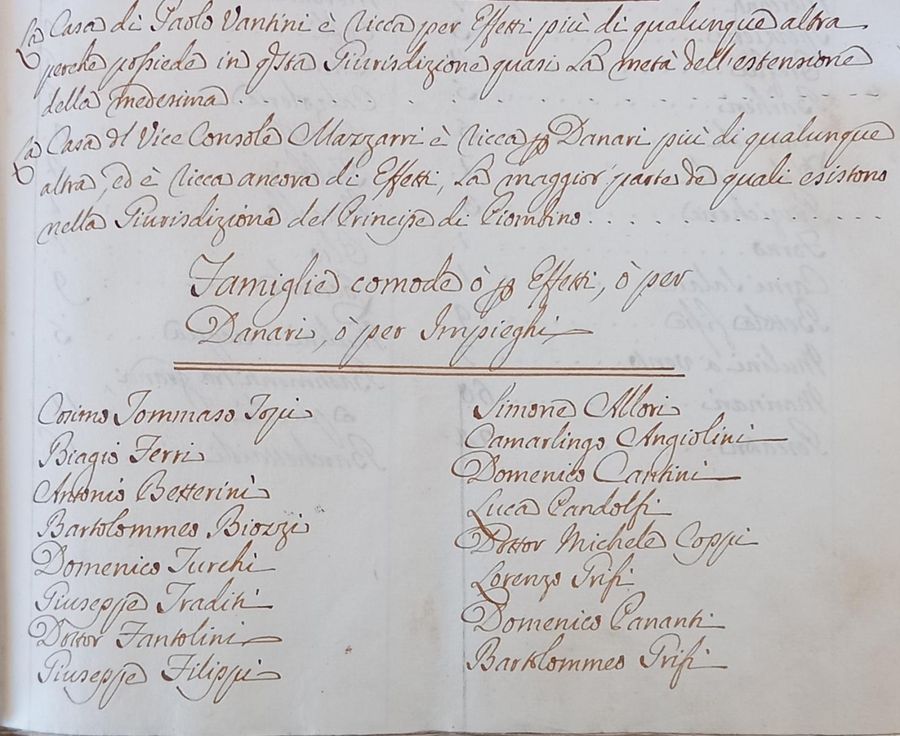 La Casa di Paolo Vantini è Ricca per Effetti più di qualunque altra
perche possiede in qsta Giurisdizione quasi La metà dell'estensione
della medesima.
La Casa dl Vice Console Mazzarri è Ricca p Danari più di qualunque
altra, ed è Ricca ancora di Effetti, La maggior parte de quali esistono
nella Giurisdizione del Principe di Piombino.
Famiglie comode ò p Effetti, ò per
Danari, ò per Impieghi
Cosimo Tommaso Topi
Biagio Ferri
Antonio Betterini
Bartolommeo Biozzi
Domenico Turchi
Giuseppe Traditi
Dottor Fantolini
Giuseppe Filippi
Simone Allori
Camarlingo Angiolini
Domenico Cantini
Luca Pandolfi
Dottor Michele Coppi
Lorenzo Grifi
Domenico Pananti
Bartolommeo Grifi